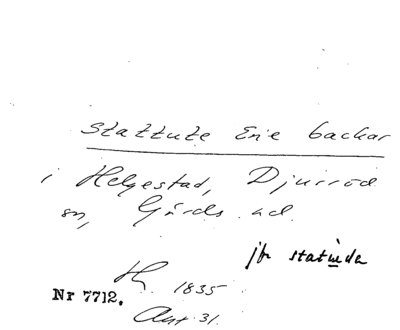 Stattute Ene backar
i Helgestad, Djurröd
sn, Gärds hd.
jfr statuda
H 1835
Nr 7712.
Akt 31.